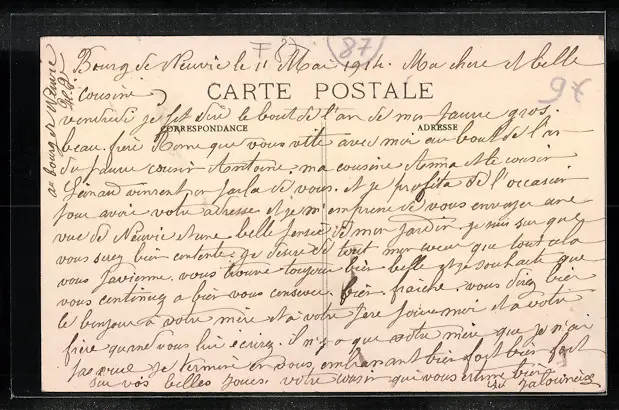 Bourg de Neuvic le 11 Mai 1914. Ma chere et belle
cousine
CARTE POSTALE
vendredi je fet dire le bout de l'an de mon pauvre gros.
CORRESPONDANCE ADRESSE
beau frère Rome que vous vite avec moi au bout de l'an
du pauvre cousin Antoine. ma cousine Anna et le cousin
vinrent on parla de vous. et je profita de l'occasion
pour avoir votre adresse et je m'empresse de vous envoyer une
vue de Neuvic et une belle pensée de mon jardin. je suis sur que
vous serez bien contente. je desire de tout mon cœur que tout cela
vous parvienne. vous trouve toujours bien belle et je souhaite que
vous continuez a bien vous conserve. bien fraiche. vous direz bien
le bonjour à votre mère et à votre père pour moi et a votre
frère quand vous lui ecrirez. il n'y a que votre mère que je n'ai
pas vue je termine en vous embrassant bien fort bien fort
sur vos belles joues. votre cousin qui vous estime bien
au bourg de Neuvic
(87)
97